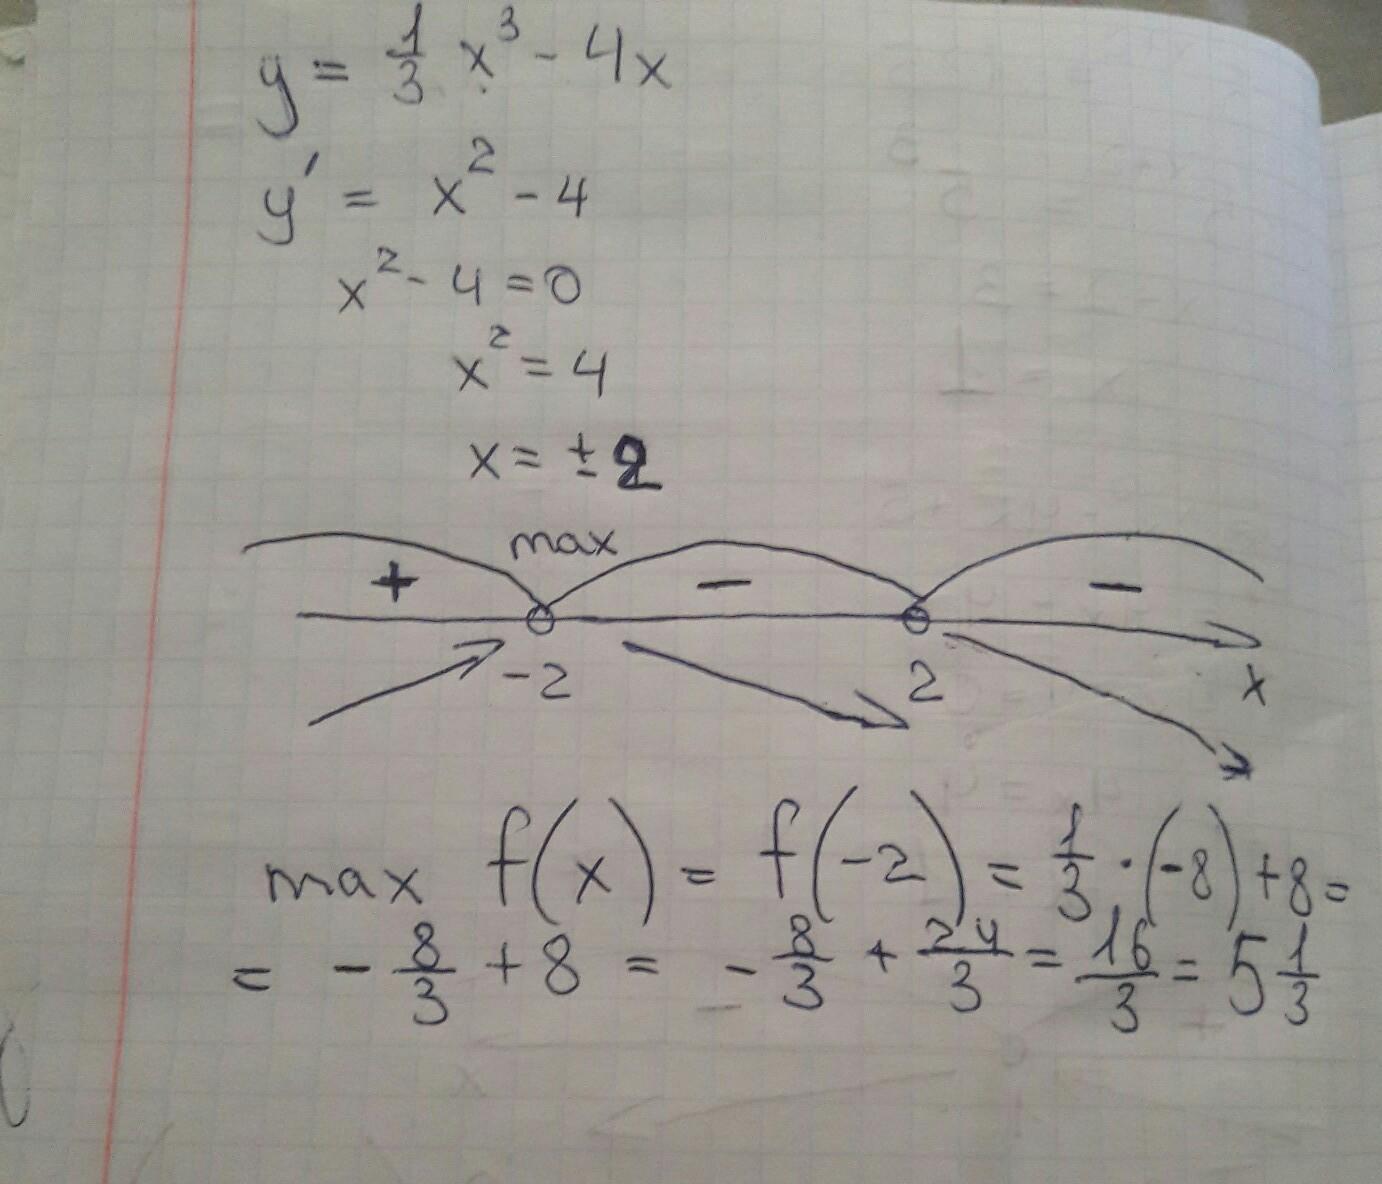 y = 1/3 x³ - 4x
y' = x² - 4
x² - 4 = 0
x² = 4
x = ± 2
max
+ − −
-2 2 x
max f(x) = f(-2) = 1/3 · (-8) + 8 =
= - 8/3 + 8 = - 8/3 + 24/3 = 16/3 = 5 1/3